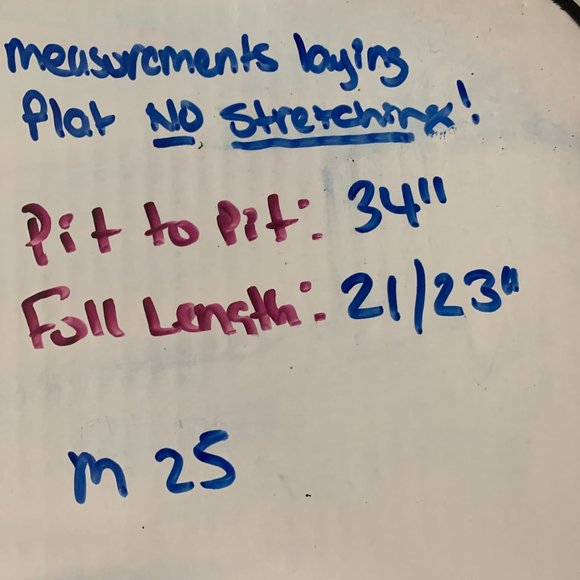 measurements laying
flat NO stretching!
Pit to Pit: 34"
Full Length: 21/23"
m 25